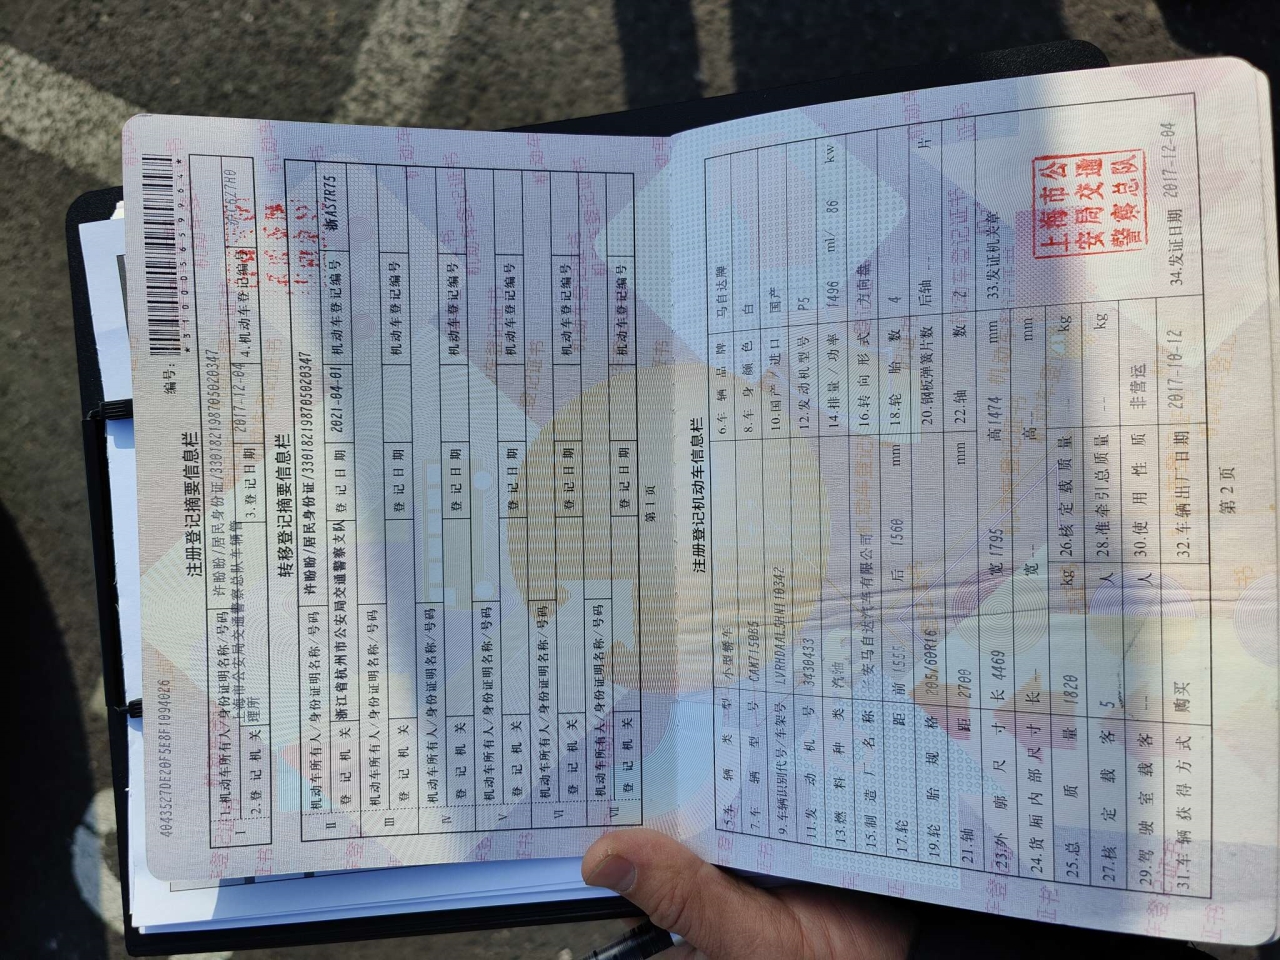 40435270E20F5E8F1094026
编号:
*310005659964*
注册登记摘要信息栏
Ⅰ 1.机动车所有人/身份证明名称/号码 许盼盼/居民身份证/330182198705020347
2.登记机关 上海市公安局交通警察总队车辆管理所 3.登记日期 2017-12-04 4.机动车登记编号
转移登记摘要信息栏
Ⅱ 机动车所有人/身份证明名称/号码 许盼盼/居民身份证/330182198705020347
登记机关 浙江省杭州市公安局交通警察支队 登记日期 2021-04-01 机动车登记编号 浙A57R75
Ⅲ 机动车所有人/身份证明名称/号码
登记机关 登记日期 机动车登记编号
Ⅳ 机动车所有人/身份证明名称/号码
登记机关 登记日期 机动车登记编号
Ⅴ 机动车所有人/身份证明名称/号码
登记机关 登记日期 机动车登记编号
Ⅵ 机动车所有人/身份证明名称/号码
登记机关 登记日期 机动车登记编号
Ⅶ 机动车所有人/身份证明名称/号码
登记机关 登记日期 机动车登记编号
第1页
注册登记机动车信息栏
5.车辆类型 小型轿车 6.车辆品牌 马自达牌
7.车辆型号 CAM7150B5 8.车身颜色 白
9.车辆识别代号/车架号 LVRHDAAL2HN110342 10.国产/进口 国产
11.发动机号 3430433 12.发动机型号 P5
13.燃料种类 汽油 14.排量/功率 1496 ml/ 86 kw
15.制造厂名称 长安马自达汽车有限公司 16.转向形式 方向盘
17.轮距 前 1555 后 1560 mm 18.轮胎数 4
19.轮胎规格 205/60R16 20.钢板弹簧片数 后轴 -- 片
21.轴距 2700 mm 22.轴数 2
23.外廓尺寸 长 4469 宽 1795 高 1474 mm 33.发证机关章
24.货厢内部尺寸 长 -- 宽 -- 高 -- mm
上海市公安局交通警察总队
25.总质量 1820 kg 26.核定载质量 -- kg
27.核定载客 5 人 28.准牵引总质量 -- kg
29.驾驶室载客 -- 人 30.使用性质 非营运
31.车辆获得方式 购买 32.车辆出厂日期 2017-10-12 34.发证日期 2017-12-04
第2页